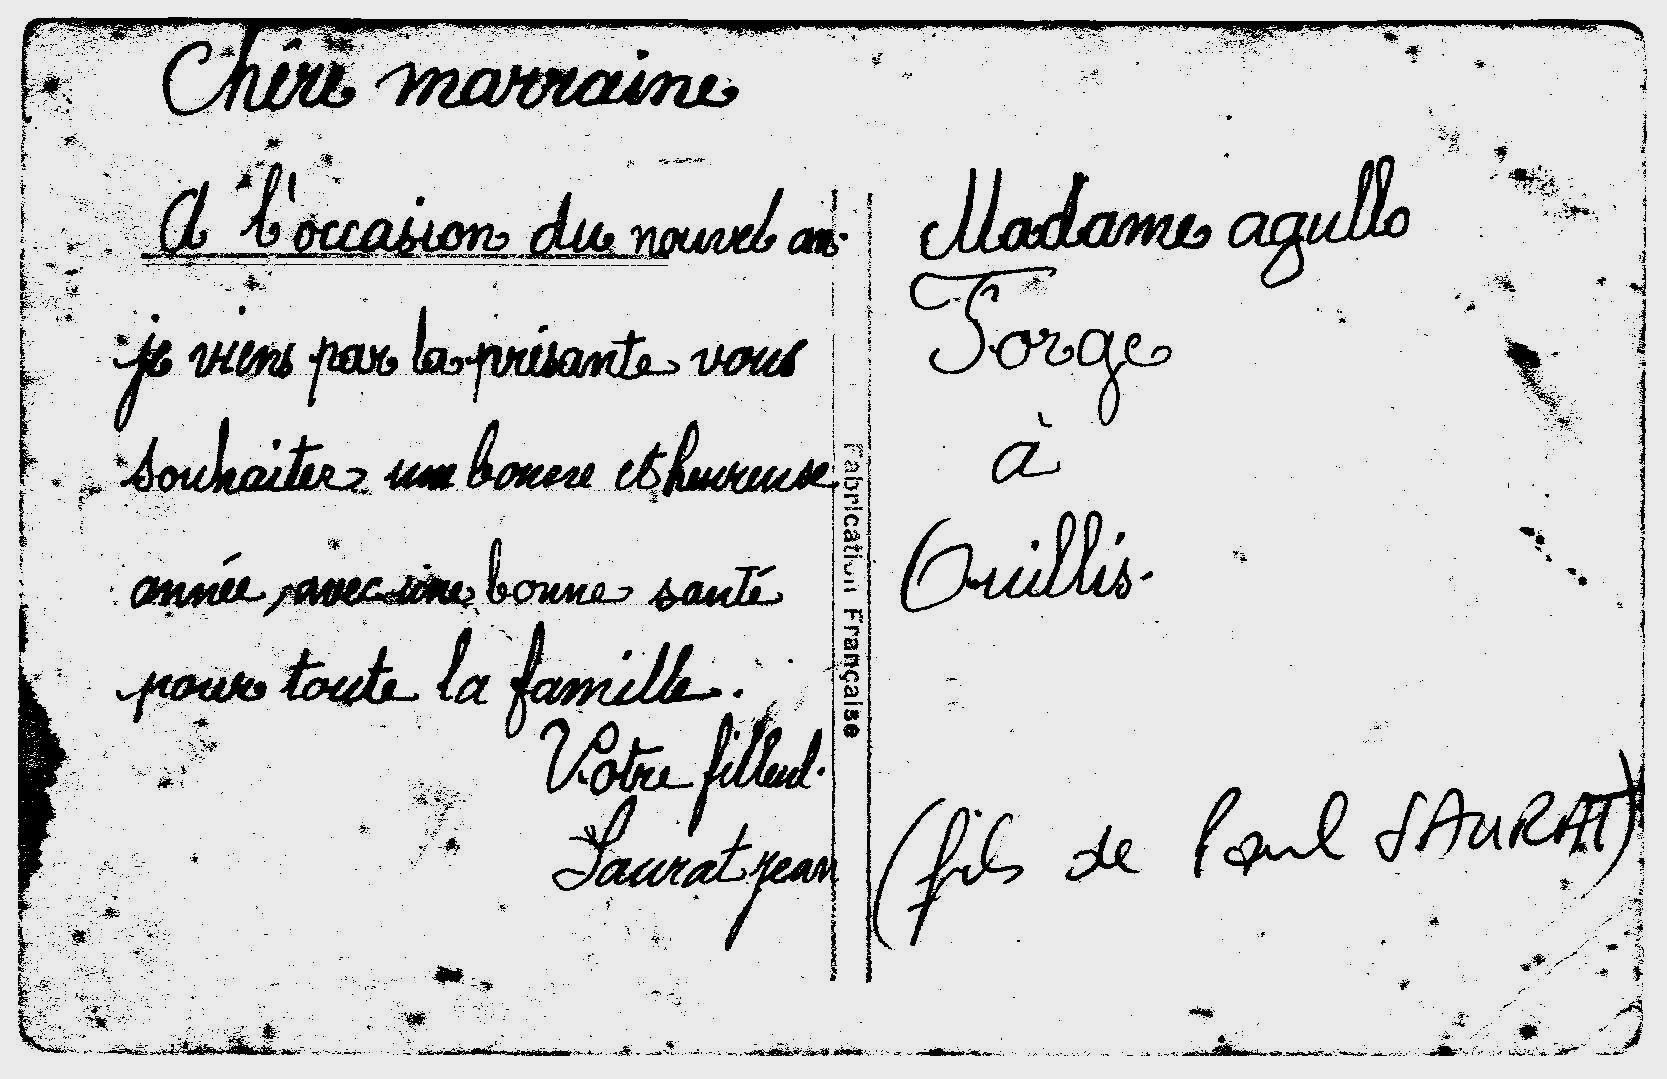 Chère marraine
A l'occasion du nouvel an.
je viens par la présante vous
souhaiter une bonne et heureuse
année, avec une bonne santé
pour toute la famille.
Votre filleul.
Saurat jean
Fabrication Française
Madame agullo
Forge
à
Orillis.
(fils de Paul SAURAT)